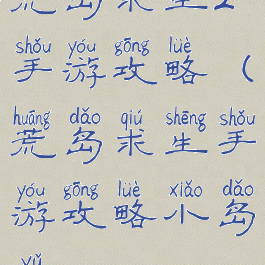 荒岛求生2
shǒu yóu gōng lüè
手游攻略(
huāng dǎo qiú shēng shǒu
荒岛求生手
yóu gōng lüè xiǎo dǎo
游攻略小岛
yǔ